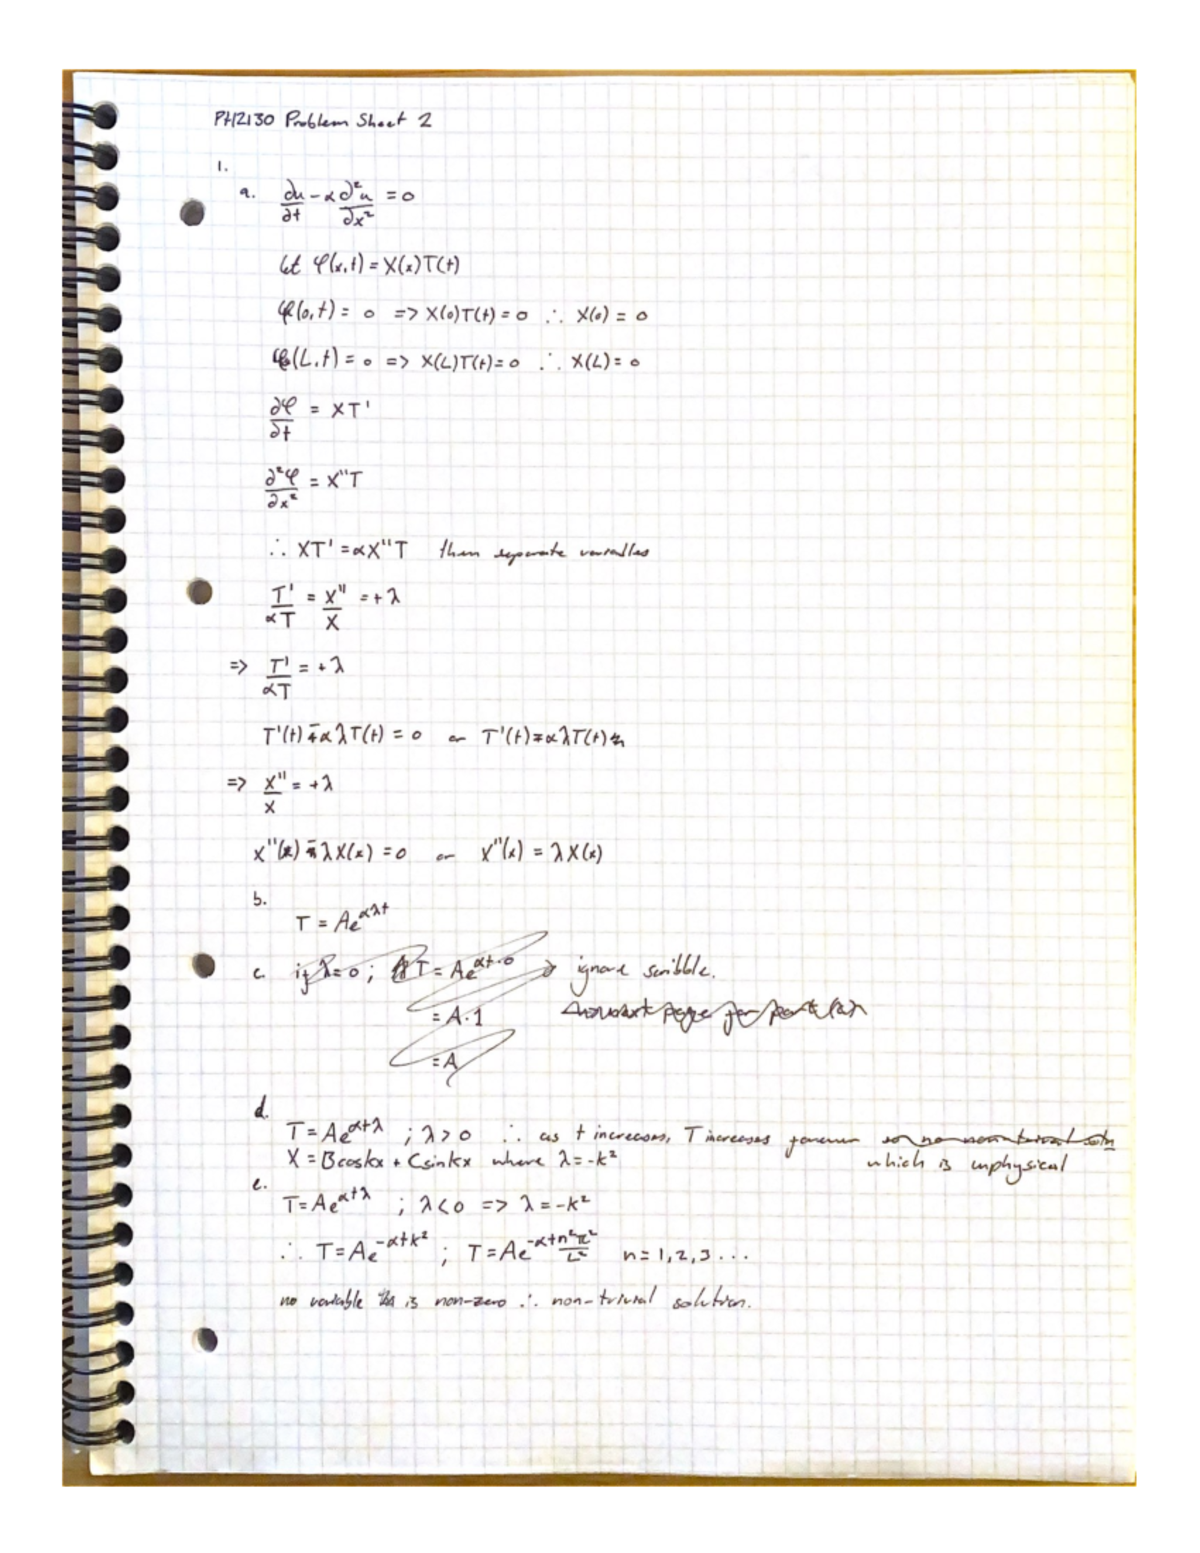 PH2130 Problem Sheet 2
1.
a. ∂u/∂t - α ∂²u/∂x² = 0
let φ(x,t) = X(x)T(t)
φ(0,t) = 0 => X(0)T(t) = 0 ∴ X(0) = 0
φ(L,t) = 0 => X(L)T(t) = 0 ∴ X(L) = 0
∂φ/∂t = XT'
∂²φ/∂x² = X''T
∴ XT' = αX''T then separate variables
T'/αT = X''/X = +λ
=> T'/αT = +λ
T'(t) - αλT(t) = 0 or T'(t) = αλT(t)
=> X''/X = +λ
X''(x) - λX(x) = 0 or X''(x) = λX(x)
b.
T = Ae^{αλt}
c. if λ=0; T = Ae^{αt·0} → ignore scribble.
= A·1
= A
d.
T = Ae^{αtλ} ; λ>0 ∴ as t increases, T increases forever so no non-trivial soln
X = Bcoskx + Csinkx where λ=-k² which is unphysical
e.
T = Ae^{αtλ} ; λ<0 => λ=-k²
∴ T = Ae^{-αtk²} ; T = Ae^{-αt n²π²/L²} n=1,2,3...
no variable is non-zero ∴ non-trivial solution.